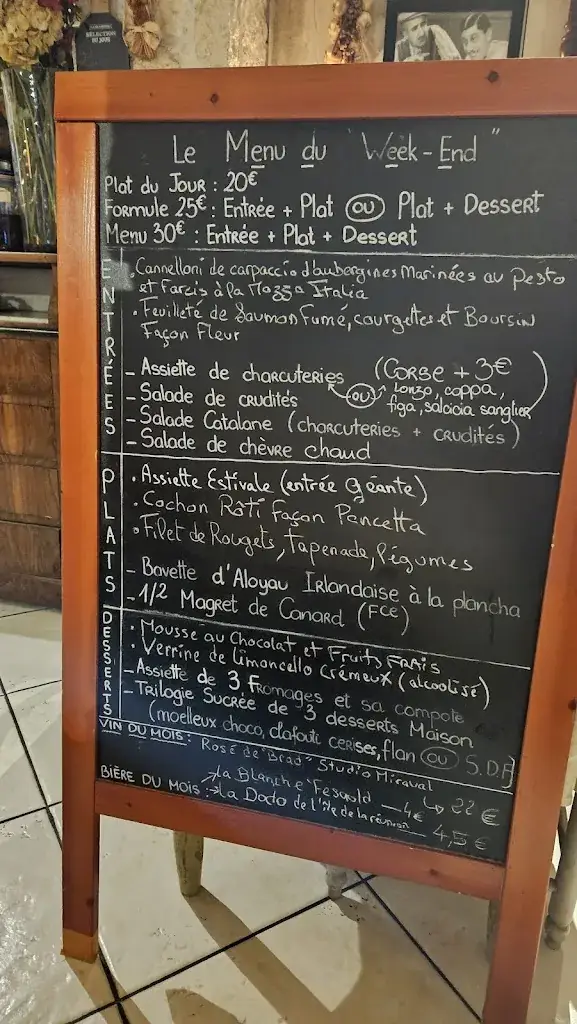 SÉLECTION
DU JOUR
Le Menu du "Week-End"
Plat du Jour : 20€
Formule 25€ : Entrée + Plat OU Plat + Dessert
Menu 30€ : Entrée + Plat + Dessert
ENTRÉES
. Cannelloni de carpaccio d'aubergines Marinées au pesto
et Farcis à la Mozza Italia
. Feuilleté de Saumon Fumé, courgettes et Boursin
Façon Fleur
- Assiette de charcuteries (CORSE + 3€
OU Lonzo, coppa,
figa, salcicia sanglier)
- Salade de crudités
- Salade Catalane (charcuteries + crudités)
- Salade de chèvre chaud
PLATS
. Assiette Estivale (entrée Géante)
. Cochon Rôti façon Pancetta
. Filet de Rougets, tapenade, légumes
- Bavette d'Aloyau Irlandaise à la plancha
- 1/2 Magret de Canard (FCE)
DESSERTS
. Mousse au Chocolat et Fruits Frais
. Verrine de limoncello Crémeux (alcoolisé)
- Assiette de 3 fromages et sa compote
- Trilogie Sucrée de 3 desserts Maison
(moelleux choco, clafouti cerises, flan OU S.D.A)
VIN DU MOIS : Rosé de "Brad" Studio Miraval
↳ 22 €
BIÈRE DU MOIS : → la Blanche — 4€
→ La Dodo de l'île de la réunion — 4,5 €